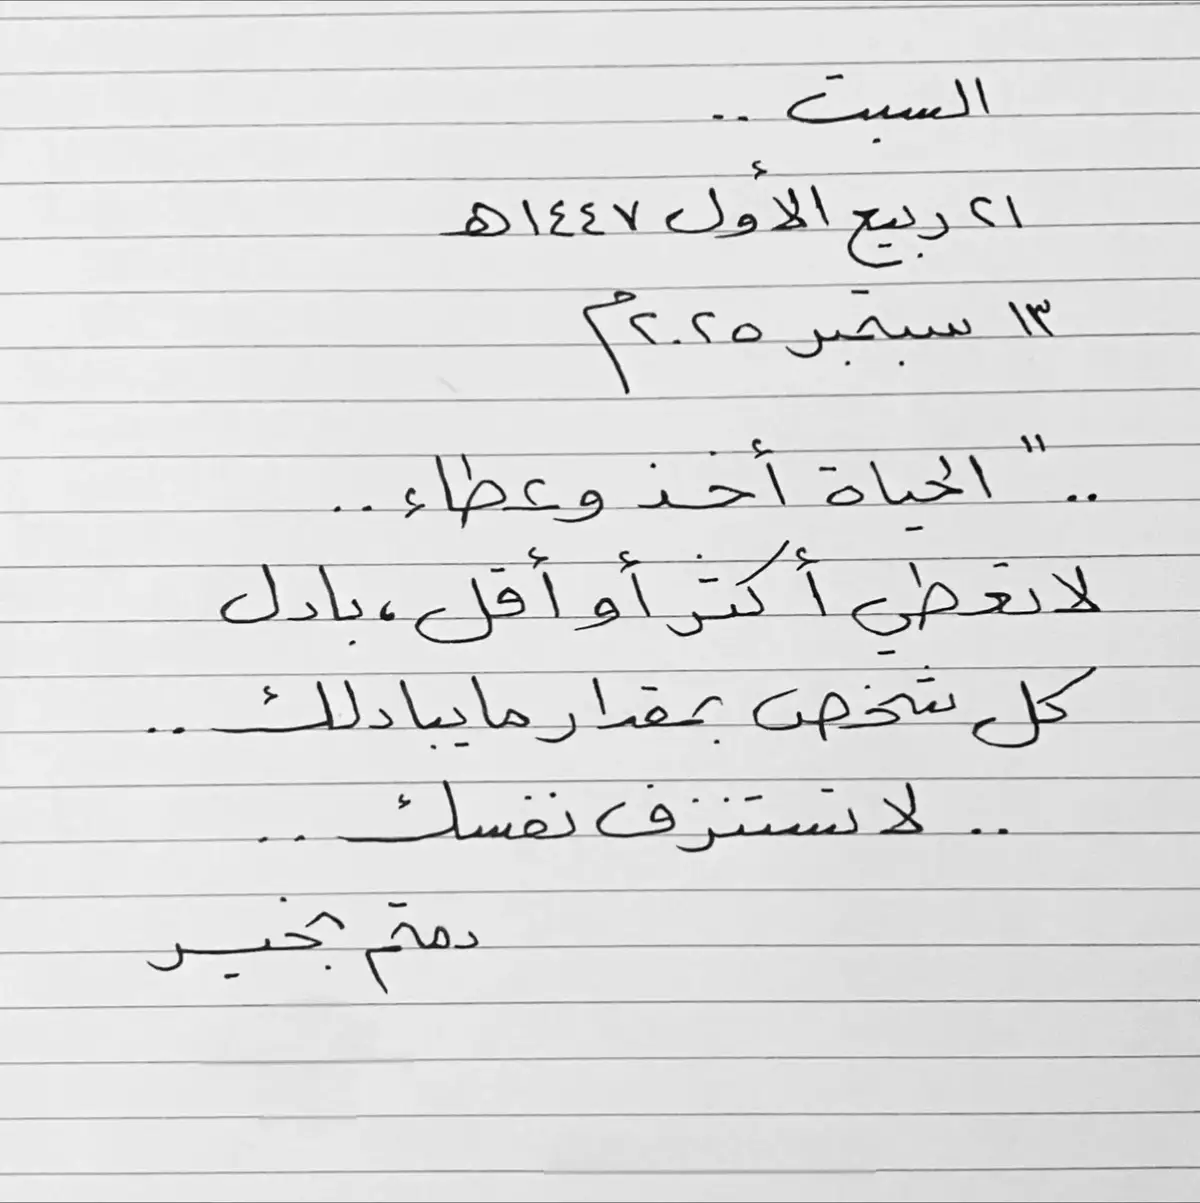 السبت ..
٢١ ربيع الأول ١٤٤٧هـ
١٣ سبتمبر ٢٠٢٥م
.. " الحياة أخذ وعطاء ..
لا تعطي أكثر أو أقل ، بادل
كل شخص بمقدار ما يبادلك ..
.. لا تستنزف نفسك ..
دمتم بخير